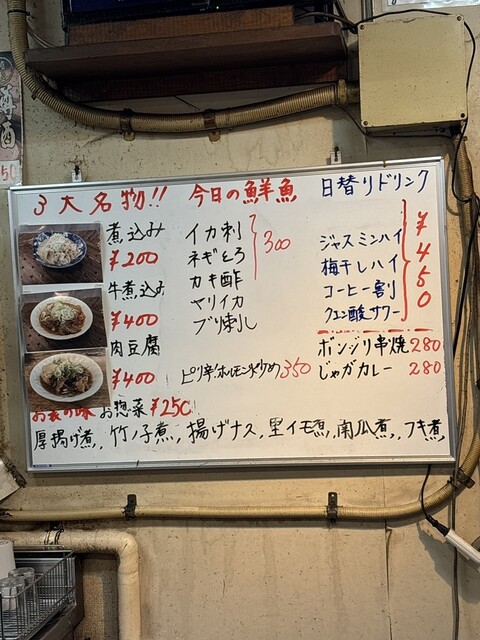 3大名物!!
煮込み
¥200
牛煮込み
¥400
肉豆腐
¥400
今日の鮮魚
イカ刺
ネギとろ
カキ酢
ヤリイカ
ブリ刺し
300
ピリ辛ホルモン炒め350
日替りドリンク
ジャスミンハイ
梅干しハイ
コーヒー割
クエン酸サワー
¥450
ボンジリ串焼280
じゃがカレー280
お袋の味 お惣菜¥250
厚揚げ煮, 竹ノ子煮, 揚げナス, 里イモ煮, 南瓜煮, フキ煮